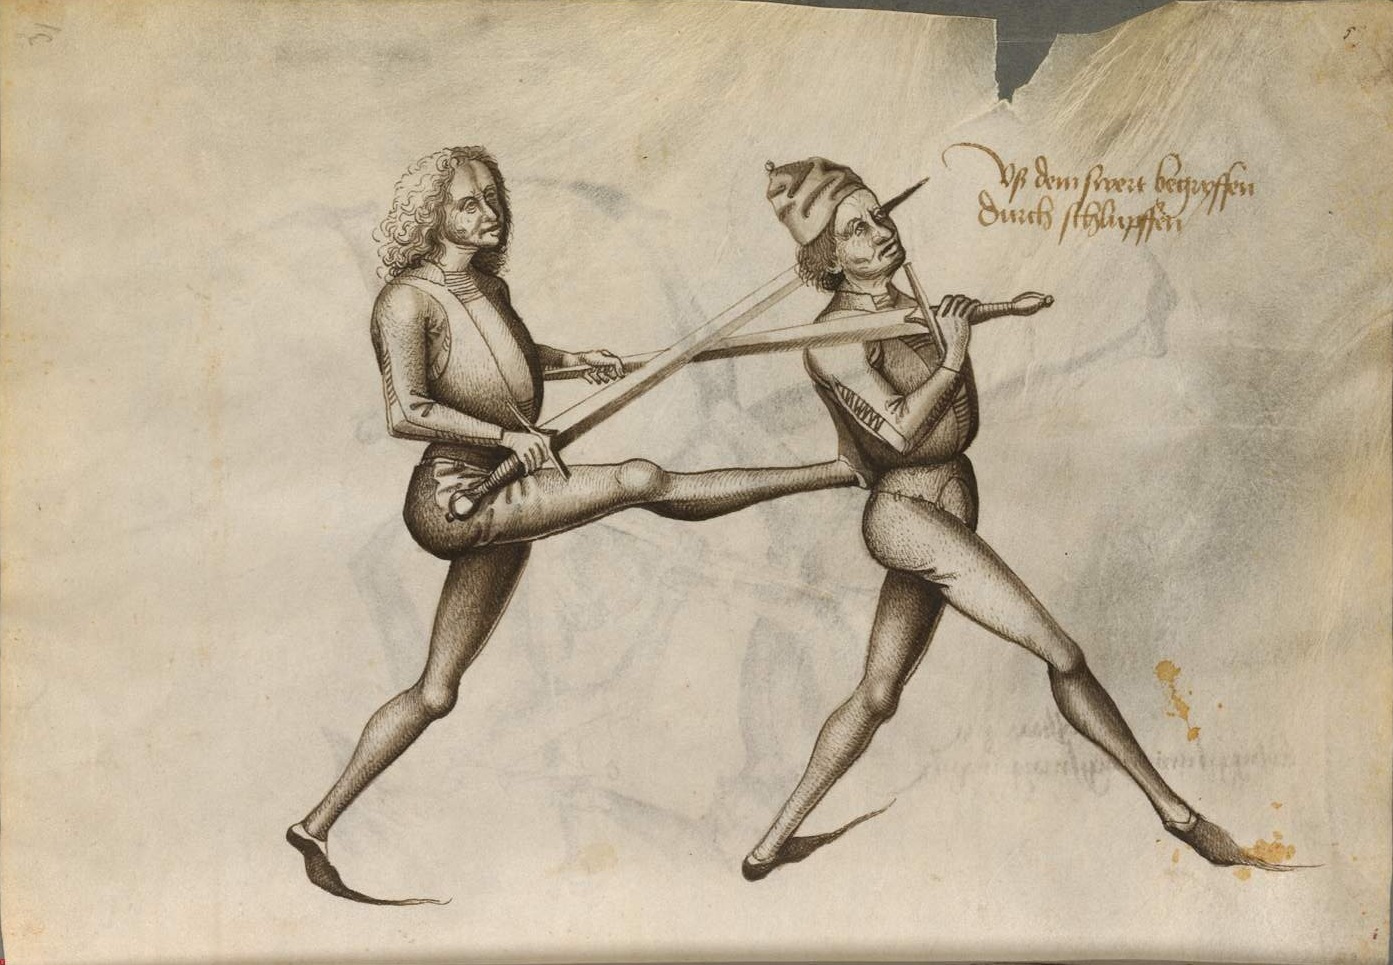 31
5
Vß dem swert begryffen
durch schlupffen